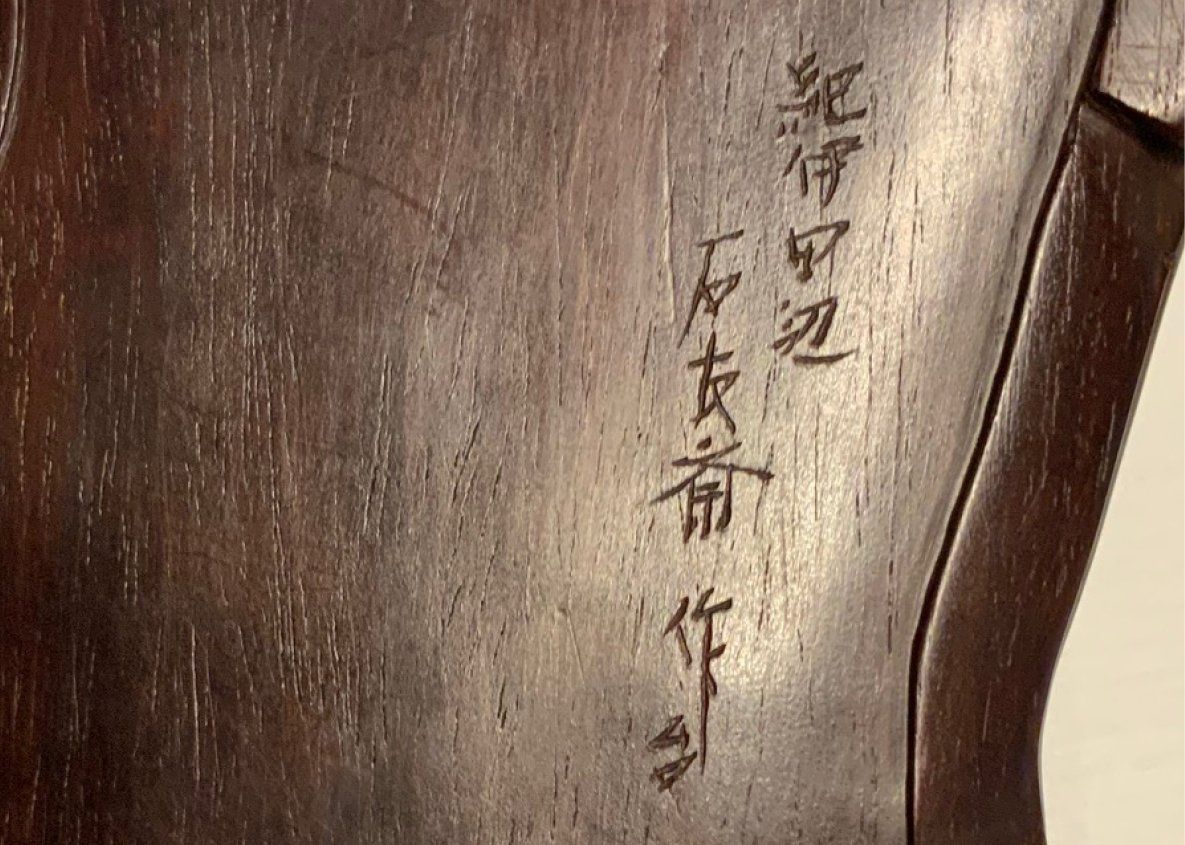 紀伊田辺
石友斎 作台